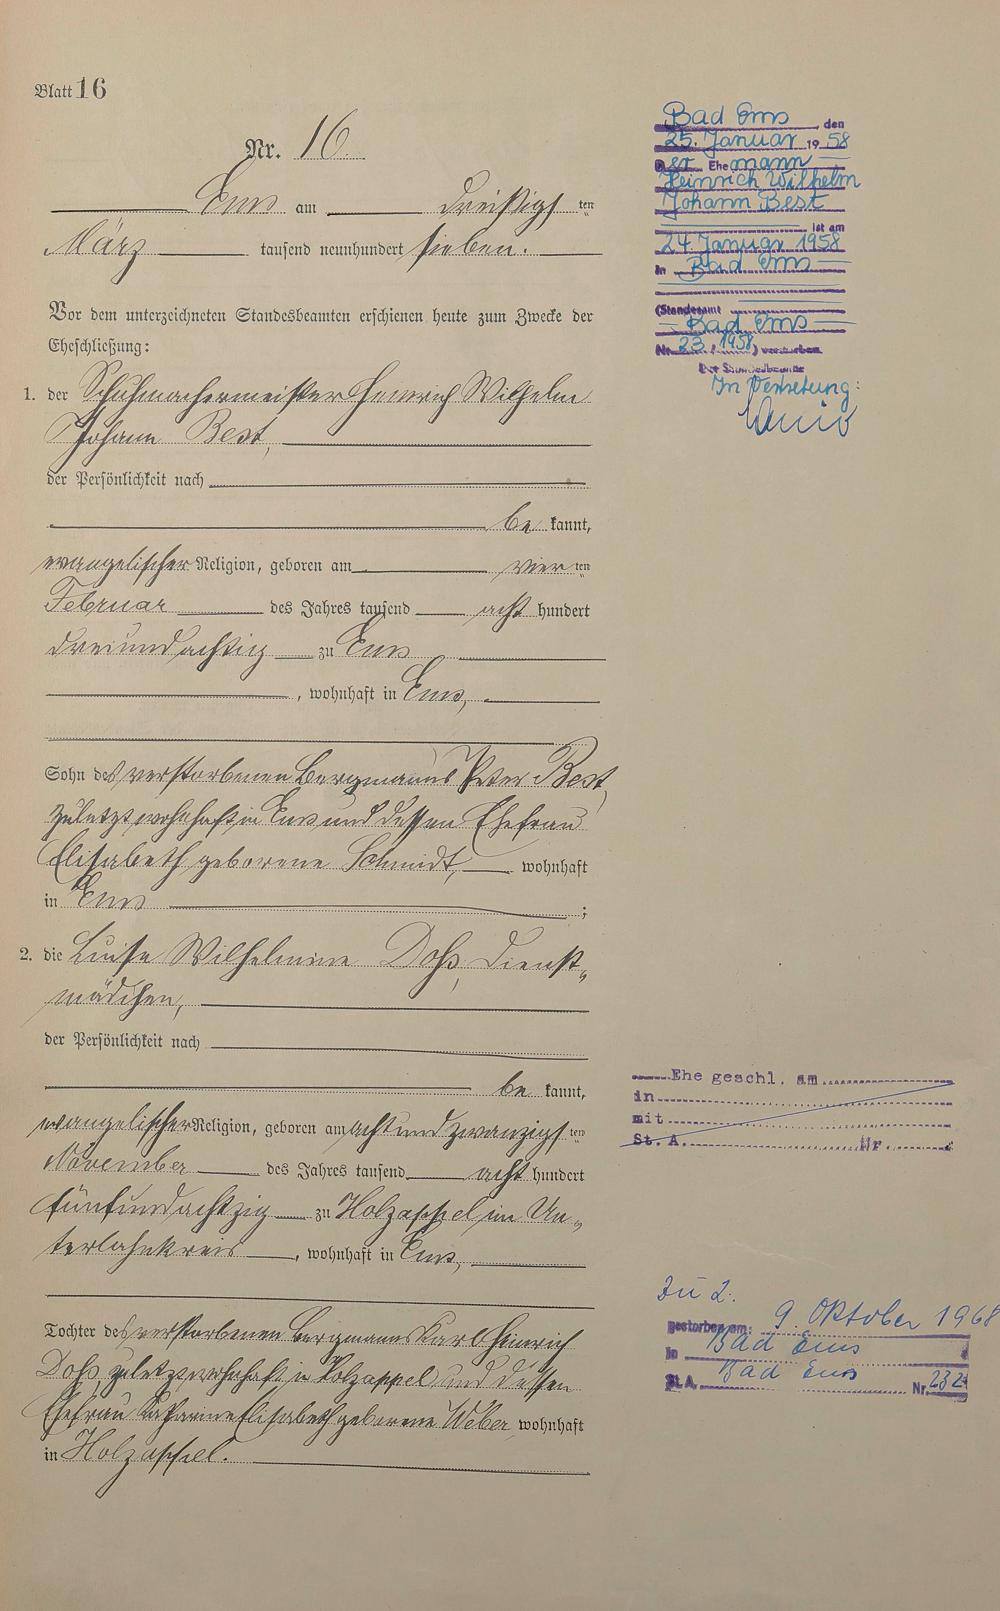 Blatt 16
Nr. 16
Ems am dreißigsten
März tausend neunhundert sieben.
Vor dem unterzeichneten Standesbeamten erschienen heute zum Zwecke der
Eheschließung:
1. der Schuhmachermeister Heinrich Wilhelm
Johann Best,
der Persönlichkeit nach
be kannt,
evangelischer Religion, geboren am vier ten
Februar des Jahres tausend acht hundert
dreiundachtzig zu Ems
, wohnhaft in Ems,
Sohn des verstorbenen Bergmanns Peter Best,
zuletzt wohnhaft in Ems und dessen Ehefrau
Elisabeth geborene Schmidt, wohnhaft
in Ems ;
2. die Luise Wilhelmine Dohs, Dienst-
mädchen,
der Persönlichkeit nach
be kannt,
evangelischer Religion, geboren am achtundzwanzigsten
November des Jahres tausend acht hundert
fünfundachtzig zu Holzappel im Un-
terlahnkreis, wohnhaft in Ems,
Tochter des verstorbenen Bergmanns Karl Heinrich
Dohs zuletzt wohnhaft in Holzappel und dessen
Ehefrau Katharine Elisabeth geborene Weber wohnhaft
in Holzappel.
Bad Ems, den
25. Januar 1958
Der Ehemann
Heinrich Wilhelm
Johann Best
ist am
24. Januar 1958
in Bad Ems
(Standesamt
Bad Ems
Nr. 23/1958) verstorben
Der Standesbeamte
In Vertretung:
Ehe geschl. am
in
mit
St. A. Nr.
Zu 2.
gestorben am: 9. Oktober 1968
in Bad Ems
St. A. Bad Ems Nr. 232